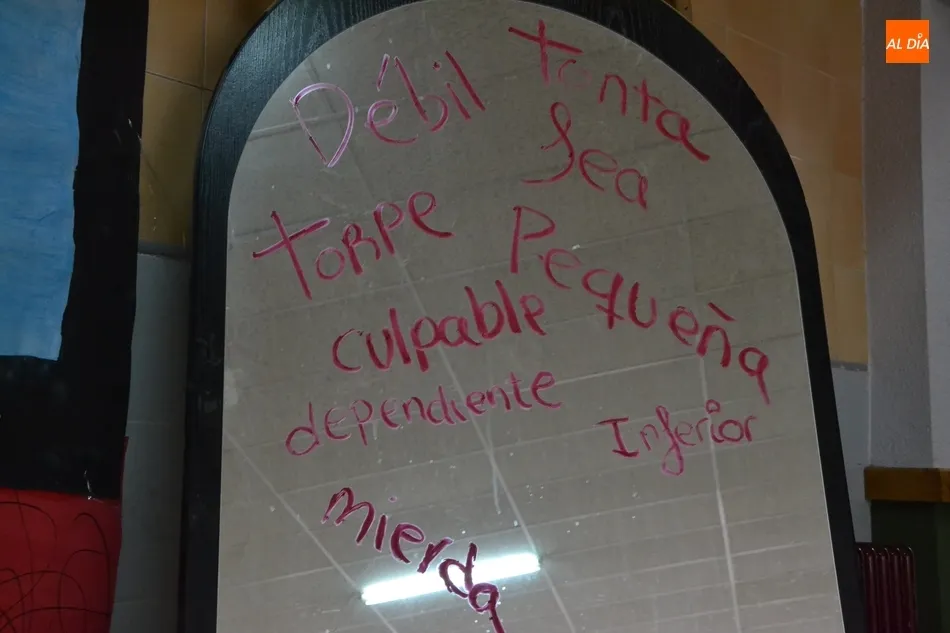 Débil
tonta
fea
torpe
Pequeña
culpable
dependiente
Inferior
mierda
AL DÍA